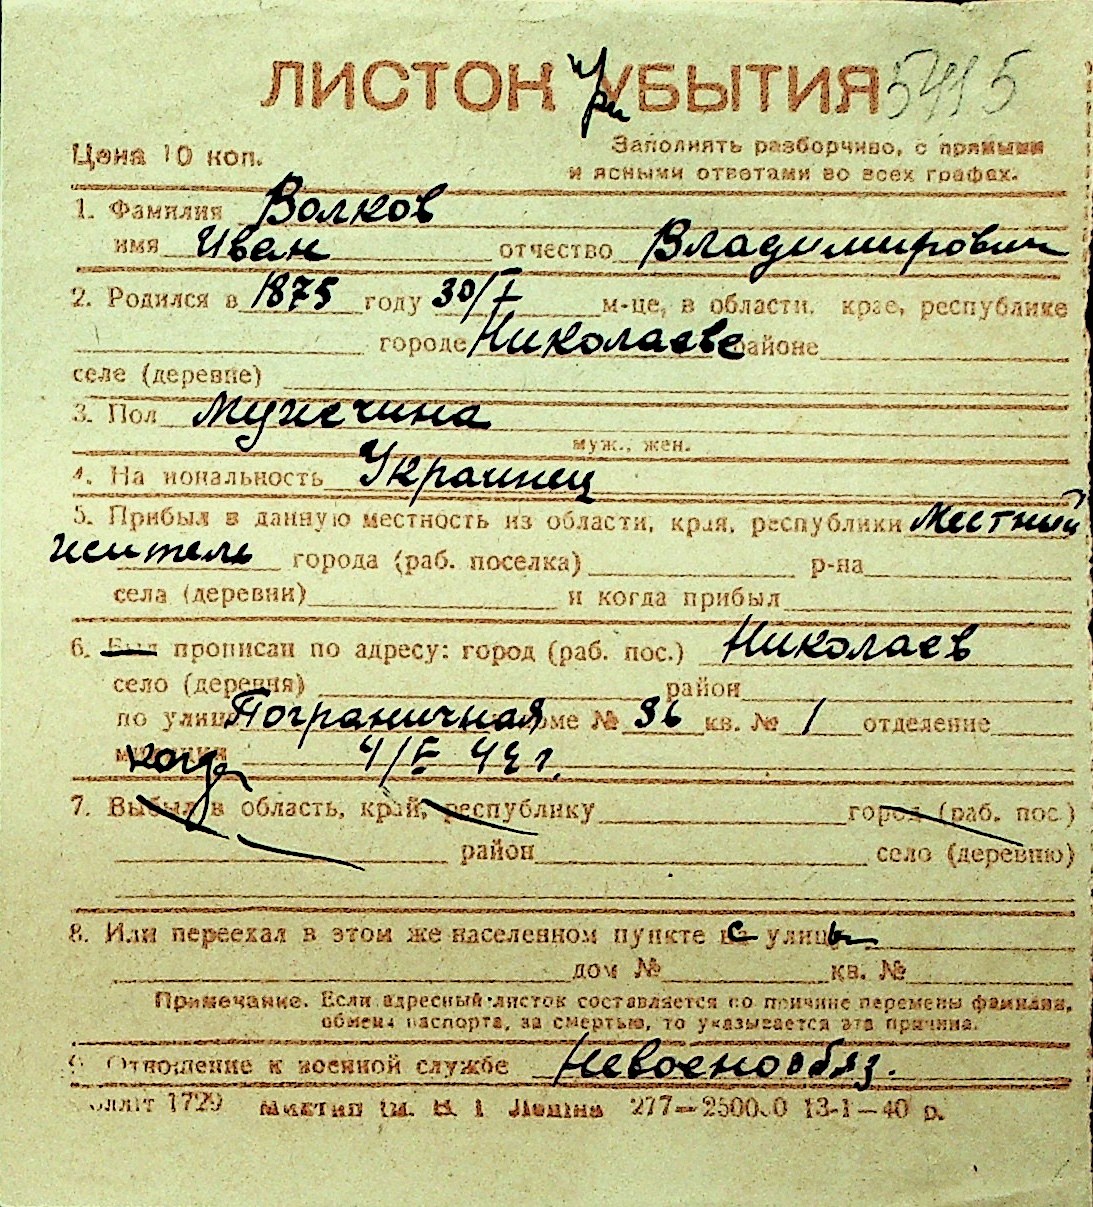 ЛИСТОК При УБЫТИЯ 5415
Цена 10 коп.
Заполнять разборчиво, с прямыми
и ясными ответами во всех графах.
1. Фамилия Волков
имя Иван отчество Владимирович
2. Родился в 1875 году 30/I м-це, в области, крае, республике
городе Николаеве районе
селе (деревне)
3. Пол Мужчина
муж., жен.
4. Национальность Украинец
5. Прибыл в данную местность из области, края, республики Местный
житель города (раб. поселка) р-на
села (деревни) и когда прибыл
6. Был прописан по адресу: город (раб. пос.) Николаев
село (деревня) район
по улице Пограничная доме № 36 кв. № 1 отделение
милиции когда 4/I 42 г.
7. Выбыл в область, край, республику город (раб. пос.)
район село (деревню)
8. Или переехал в этом же населенном пункте с улицы
дом № кв. №
Примечание. Если адресный листок составляется по причине перемены фамилии,
обмена паспорта, за смертью, то указывается эта причина.
9. Отношение к военной службе Невоенообяз.
1729 им. В. И. Ленина 277—250000 13-I—40 р.